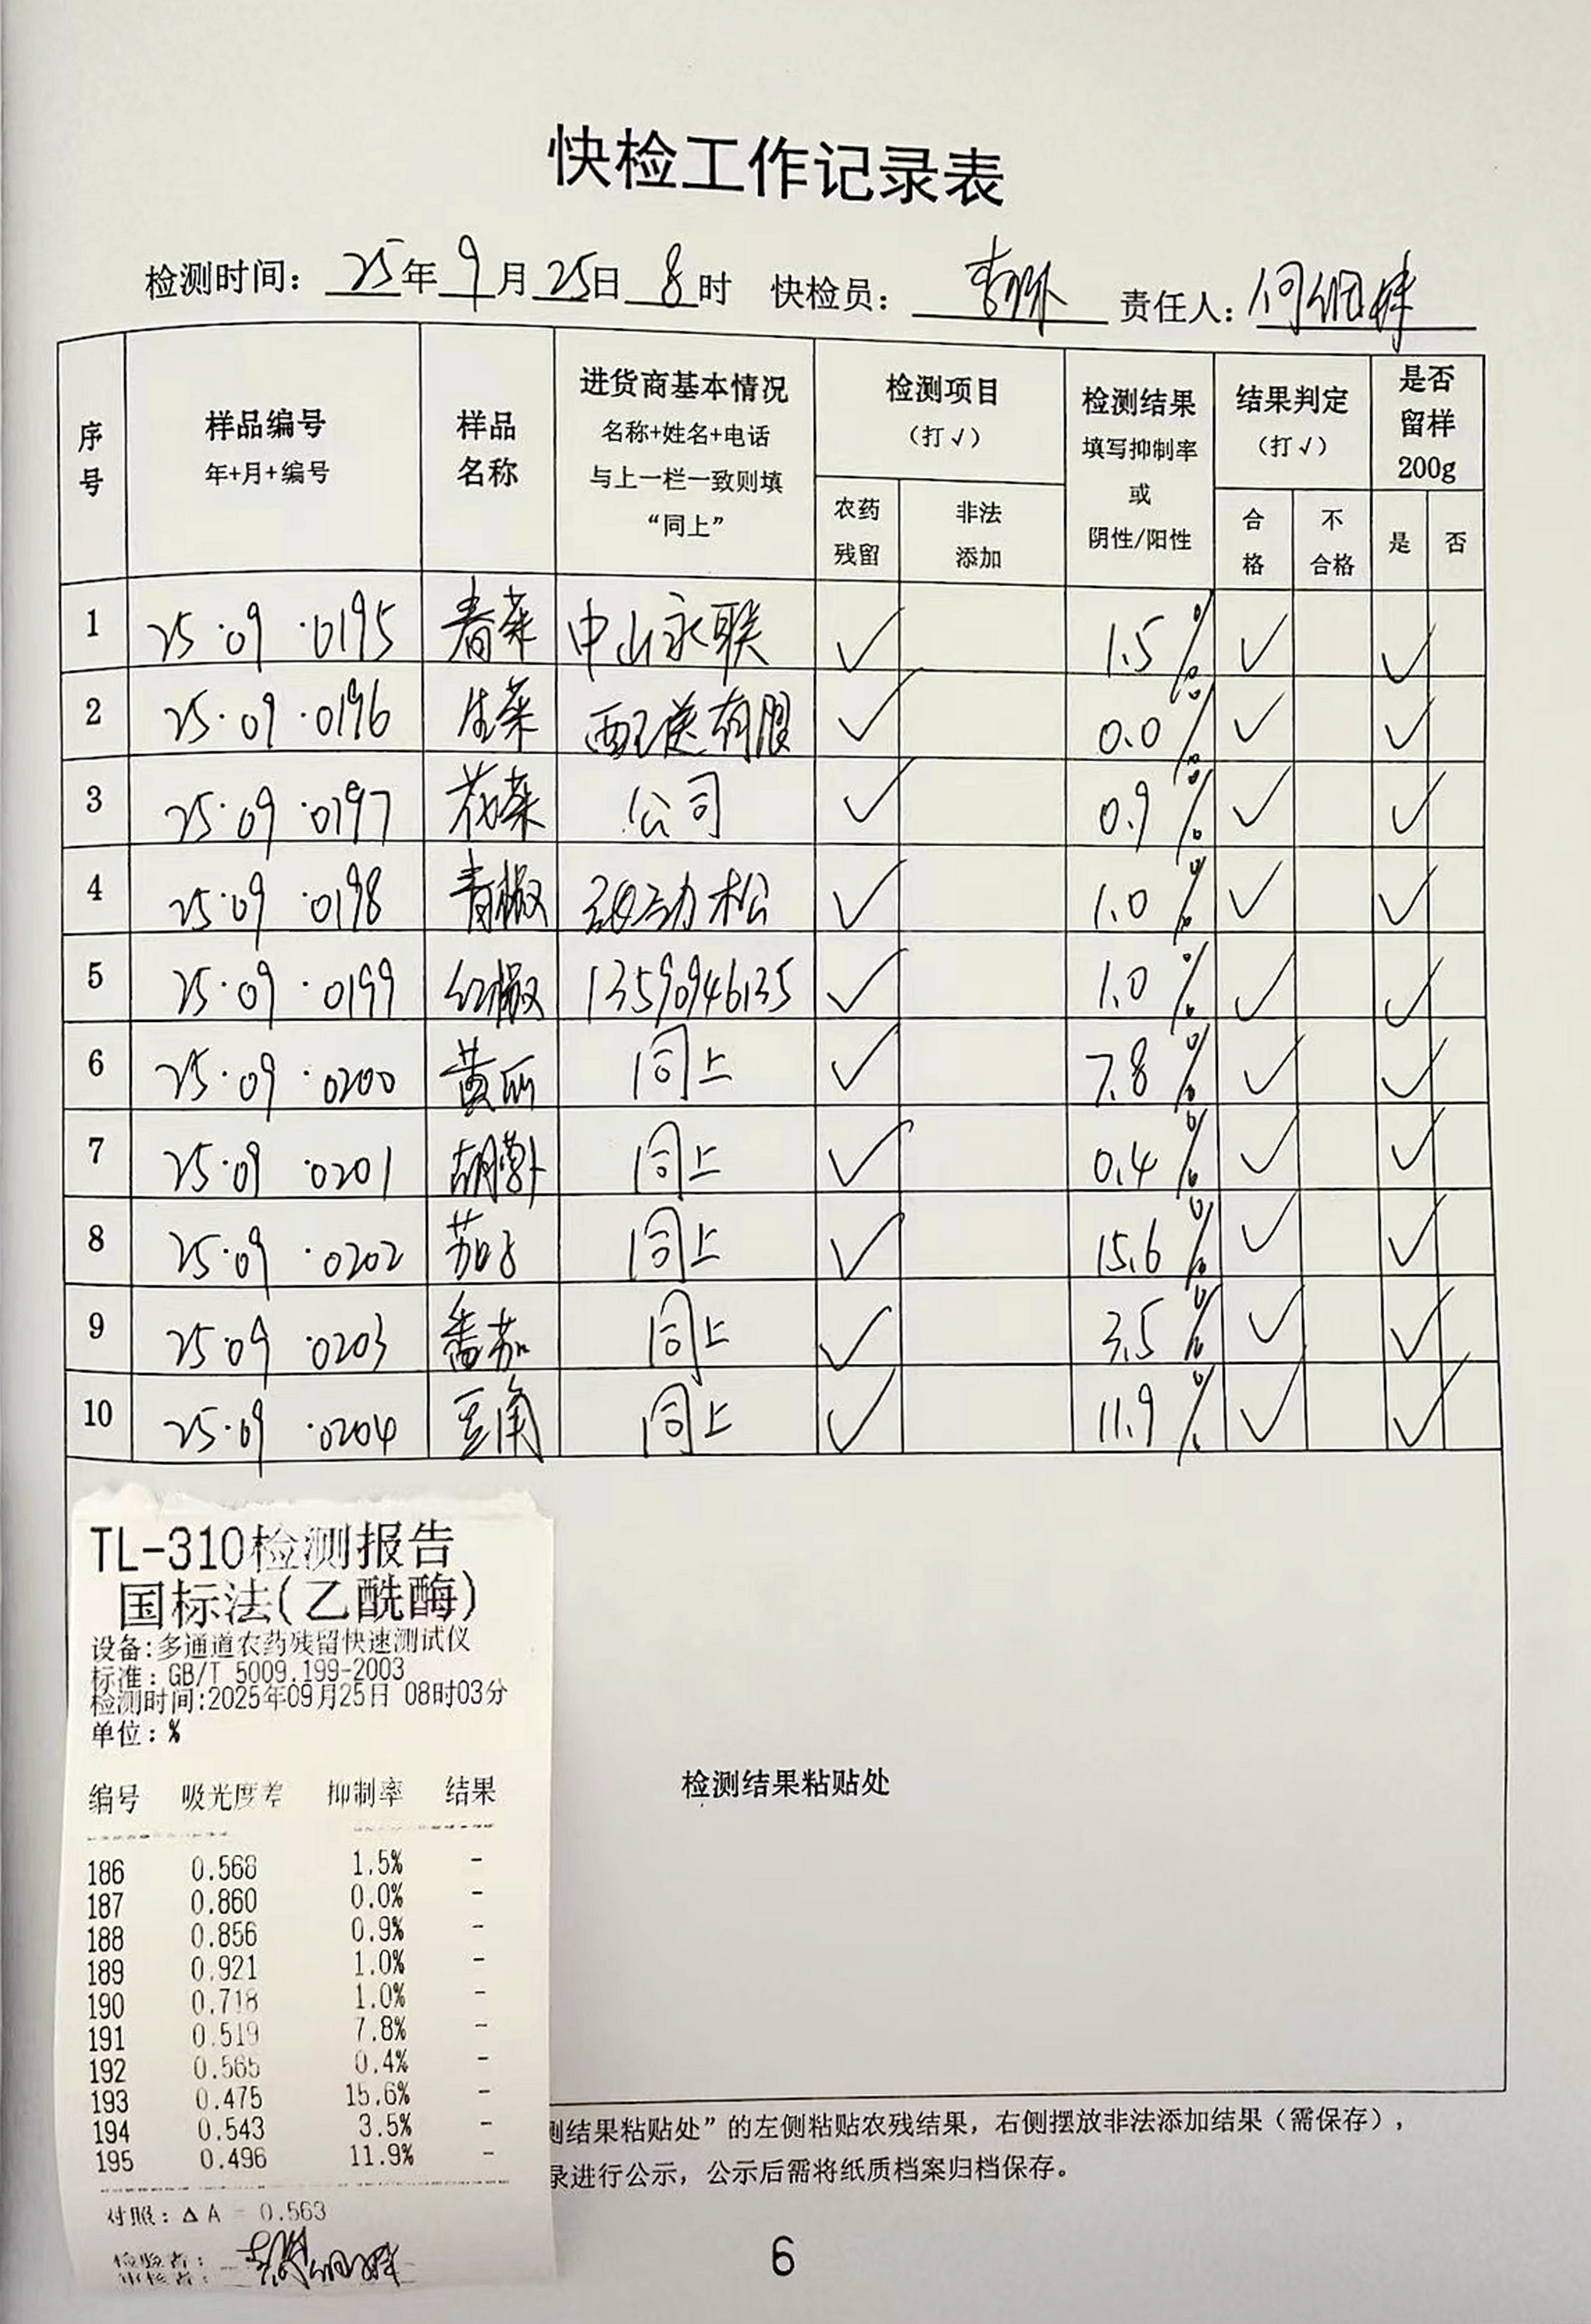 快检工作记录表
检测时间： 25年 9月 25日 8时 快检员： 责任人：
序号 样品编号 年+月+编号 样品名称 进货商基本情况 名称+姓名+电话 与上一栏一致则填“同上” 检测项目（打√） 农药残留 非法添加 检测结果 填写抑制率或阴性/阳性 结果判定（打√） 合格 不合格 是否留样200g 是 否
1 25·09·0195 春菜 中山永联 √ 1.5% √ √
2 25·09·0196 生菜 配送有限 √ 0.0% √ √
3 25·09·0197 花菜 公司 √ 0.9% √ √
4 25·09·0198 青椒 松 √ 1.0% √ √
5 25·09·0199 红椒 13590946135 √ 1.0% √ √
6 25·09·0200 黄瓜 同上 √ 7.8% √ √
7 25·09·0201 胡萝卜 同上 √ 0.4% √ √
8 25·09·0202 茄子 同上 √ 15.6% √ √
9 25·09·0203 番茄 同上 √ 3.5% √ √
10 25·09·0204 豆角 同上 √ 11.9% √ √
TL-310检测报告
国标法(乙酰酶)
设备:多通道农药残留快速测试仪
标准：GB/T 5009.199-2003
检测时间:2025年09月25日 08时03分
单位：%
编号 吸光度差 抑制率 结果
186 0.568 1.5% -
187 0.860 0.0% -
188 0.856 0.9% -
189 0.921 1.0% -
190 0.718 1.0% -
191 0.519 7.8% -
192 0.565 0.4% -
193 0.475 15.6% -
194 0.543 3.5% -
195 0.496 11.9% -
对照：△A = 0.563
检验者：
审核者：
检测结果粘贴处
测结果粘贴处”的左侧粘贴农残结果，右侧摆放非法添加结果（需保存），
录进行公示，公示后需将纸质档案归档保存。
6